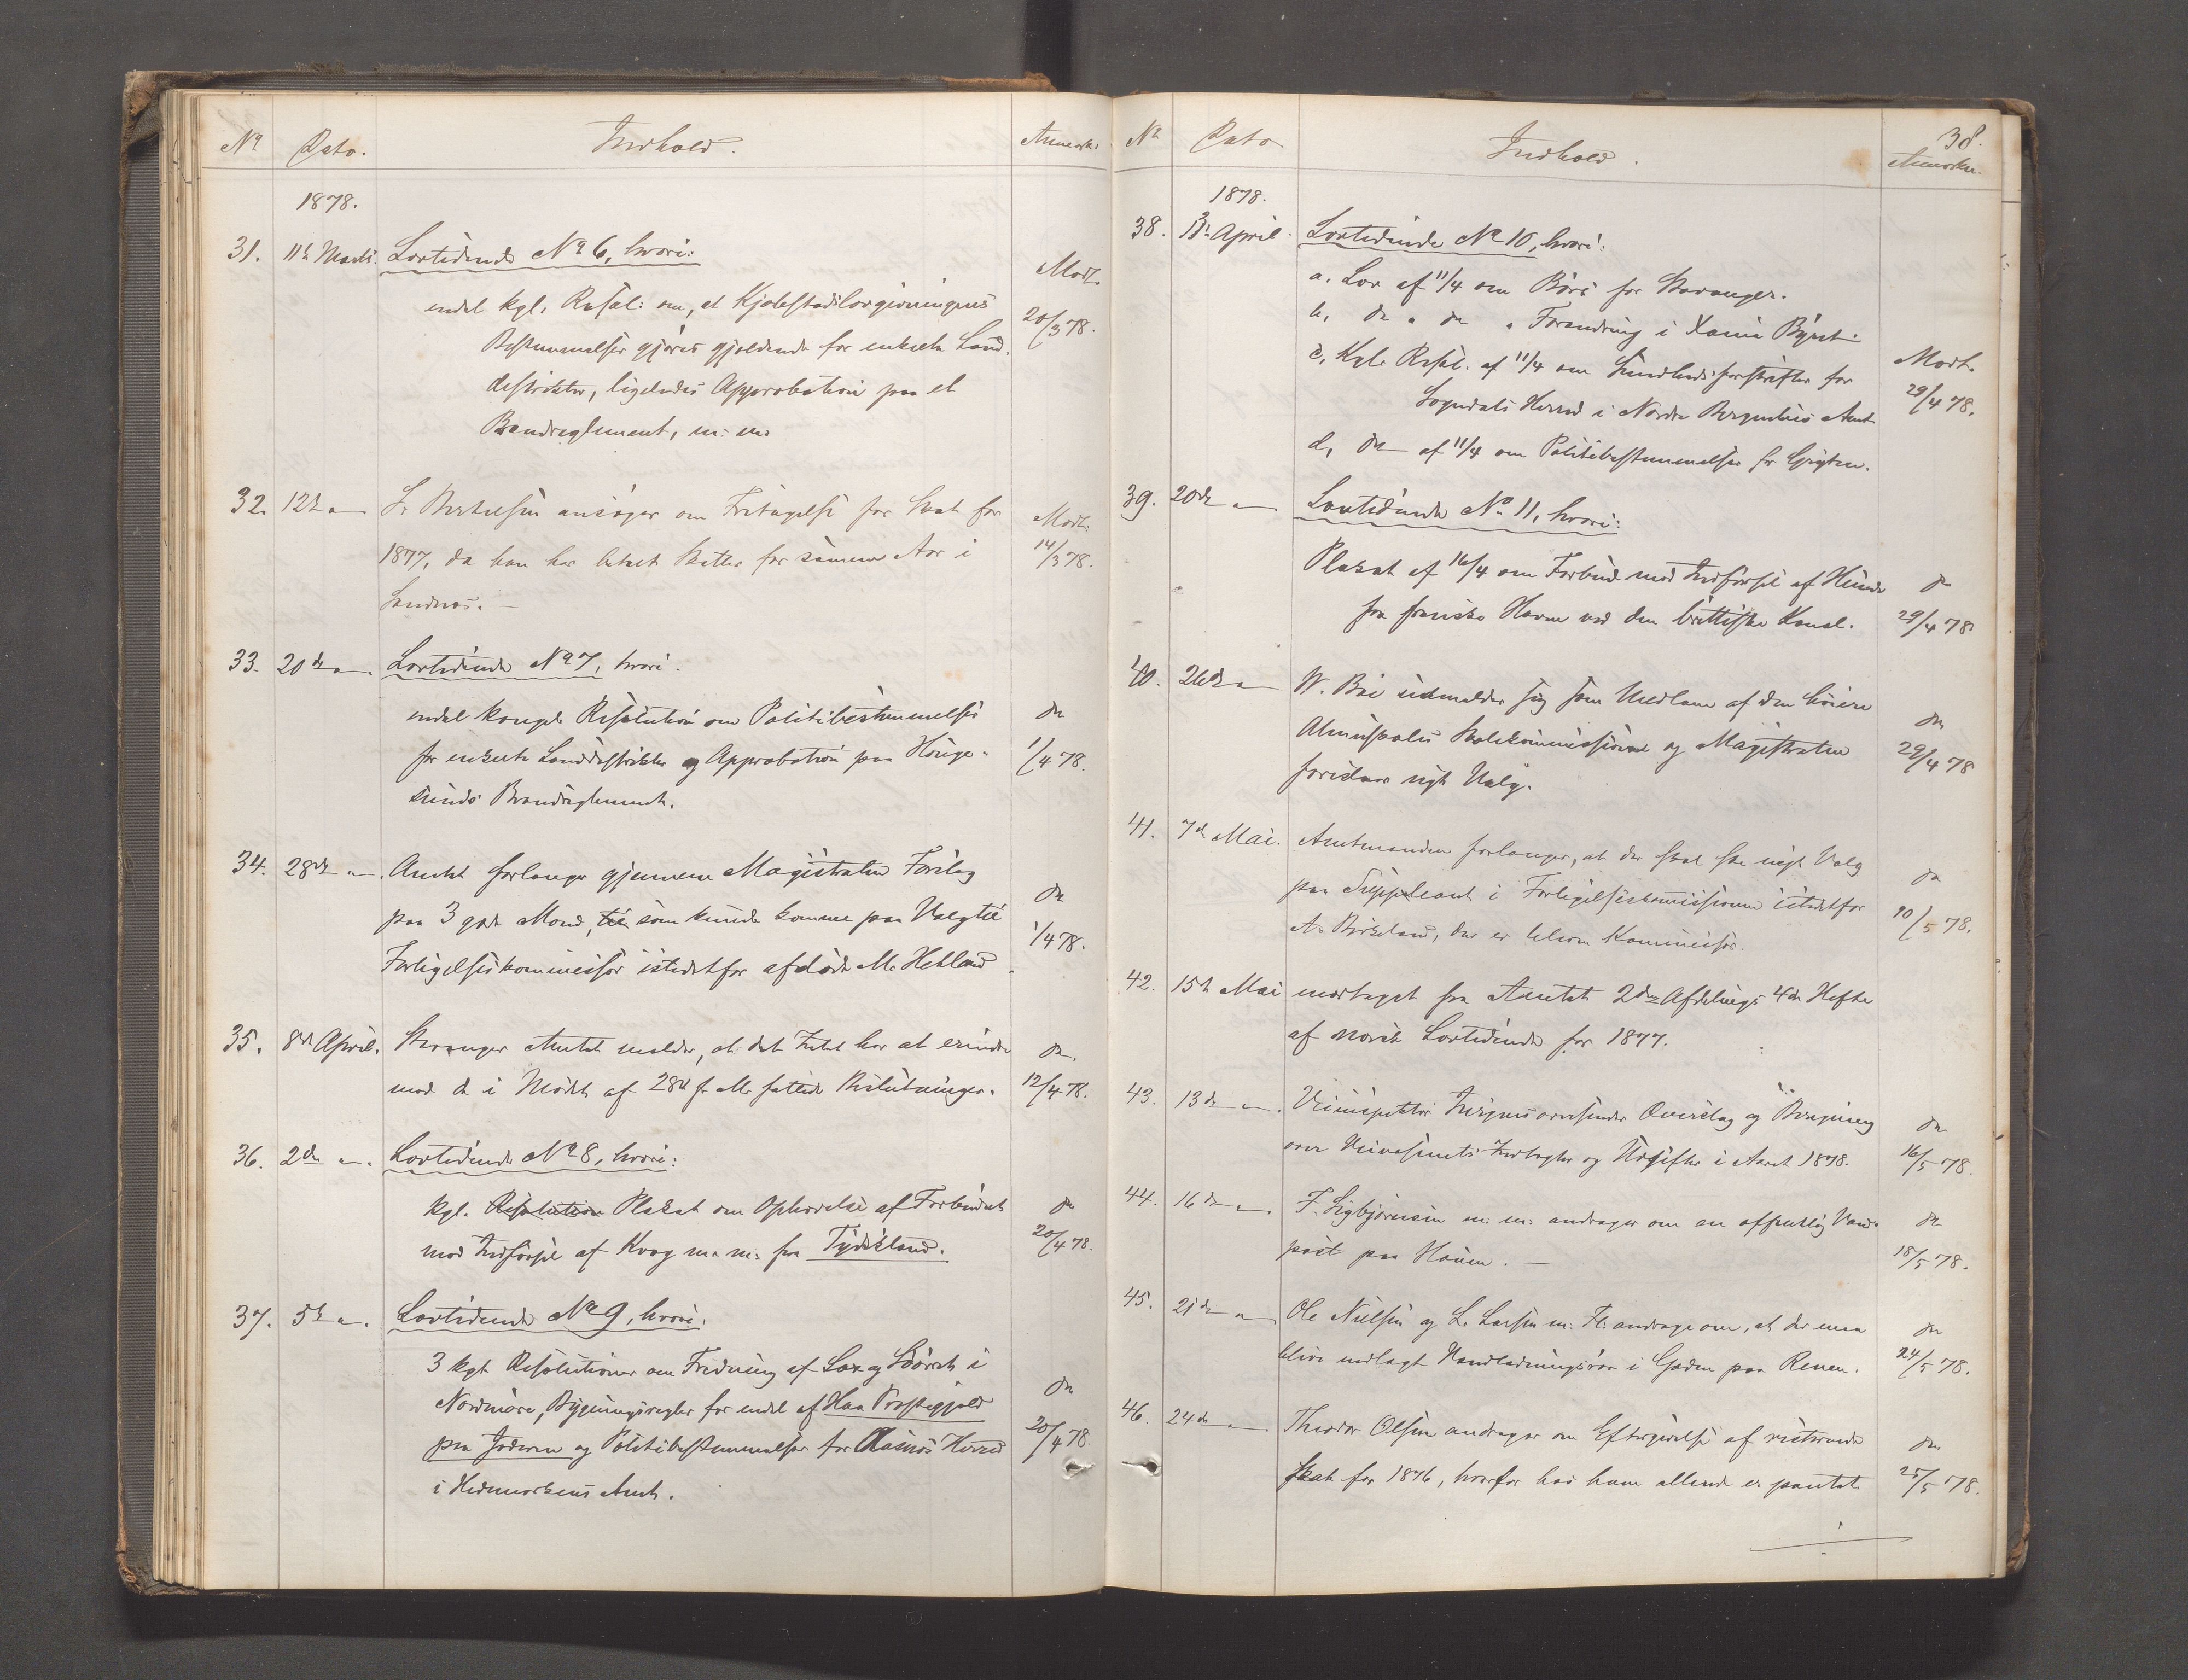 No Dato. Indhold. Anmærkn.
1878.
31. 11te Marts. Lovtidende No 6, hvori:
endel kgl. Resol: om, at Kjøbstadslovgivningens
Bestemmelser gjøres gjældende for enkelte Land-
distrikter, ligeledes Approbation paa et
Brandreglement, m: m:
Modt.
20/3 78.
32. 12te " L. Bertelsen ansøger om Fritagelse for Skat for
1877, da han har betalt Skatter for samme Aar i
Sandnæs. —
Modt.
14/3 78.
33. 20de " Lovtidende No 7, hvori.
endel kongel. Resolution om Politibestemmelser
for enkelte Landdistrikter og Approbation paa Hauge-
sunds Brandreglement.
do
1/4 78.
34. 28de " Amtet forlanger gjennem Magistraten Forslag
paa 3 gode Mænd, til som kunde komme paa Valg til
Forligelseskommissær istedetfor afdøde M. Hetland
do
1/4 78.
35. 8de April. Stavanger Amtet melder, at det Intet har at erindre
mod de i Mødet af 28de f. M. fattede Beslutninger.
do.
12/4 78.
36. 2den " Lovtidende No 8, hvori:
kgl. Resolution Plakat om Ophævelse af Forbudet
mod Indførsel af Kvæg m. m. fra Tydskland.
do
20/4 78.
37. 5te " Lovtidende No 9, hvori:
3 kgl Resolutioner om Fredning af Lax og Søørret i
Nordmøre, Bygningsregler for endel af Haa Præstegjæld
paa Jæderen og Politibestemmelser for Aasnæs Herred
i Hedmarkens Amt.
do
20/4 78.
38.
No Dato Indhold. Anmærkn.
1878.
38. 13de April. Lovtidende No 10, hvori:
a. Lov af 11/4 om Børs for Stavanger.
b. do " do " Forandring i Xania Byret.
c. Kgl. Resol. af 11/4 om Sundhedsforskrifter for
Sogndals Herred i Nordre Bergenhus Amt
d, do af 11/4 om Politibestemmelser for
Modt.
29/4 78.
39. 20de " Lovtidende No 11, hvori:
Plakat af 16/4 om Forbud mod Indførsel af Hunde
fra franske Havne ved den brittiske Kanal.
do
29/4 78
40. 26de " W. Bøe udmelder sig som Medlem af den høiere
Almueskoles Skolekommission og Magistraten
foreslaar nyt Valg.
do
29/4 78
41. 7de Mai. Amtmanden forlanger, at der skal ske nyt Valg
paa Suppleant i Forligelseskommissionen istedetfor
A. Birkeland, der er bleven Kommissær.
do
10/5 78.
42. 15de Mai modtaget fra Amtet 2den Afdelings 4de Hefte
af norsk Lovtidende for 1877.
43. 13de " Veiinspektør oversender Overslag og Beregning
over Veivæsenets Indtægter og Udgifter i Aaret 1878.
do
16/5 78.
44. 16de " F. Sigbjørnsen m: m: andrager om en offentlig Vand-
post paa Haun. —
do
18/5 78.
45. 21de " Ole Nielsen og L. Larsen m: Fl: andrage om, at der maa
blive nedlagt Vandledningsrør i Gaden paa Renen.
do
24/5 78.
46. 24de " Theodor Olsen andrager om Eftergivelse af resterende
Skat for 1876, hvorfor hos ham allerede er pantet.
do
25/5 78.